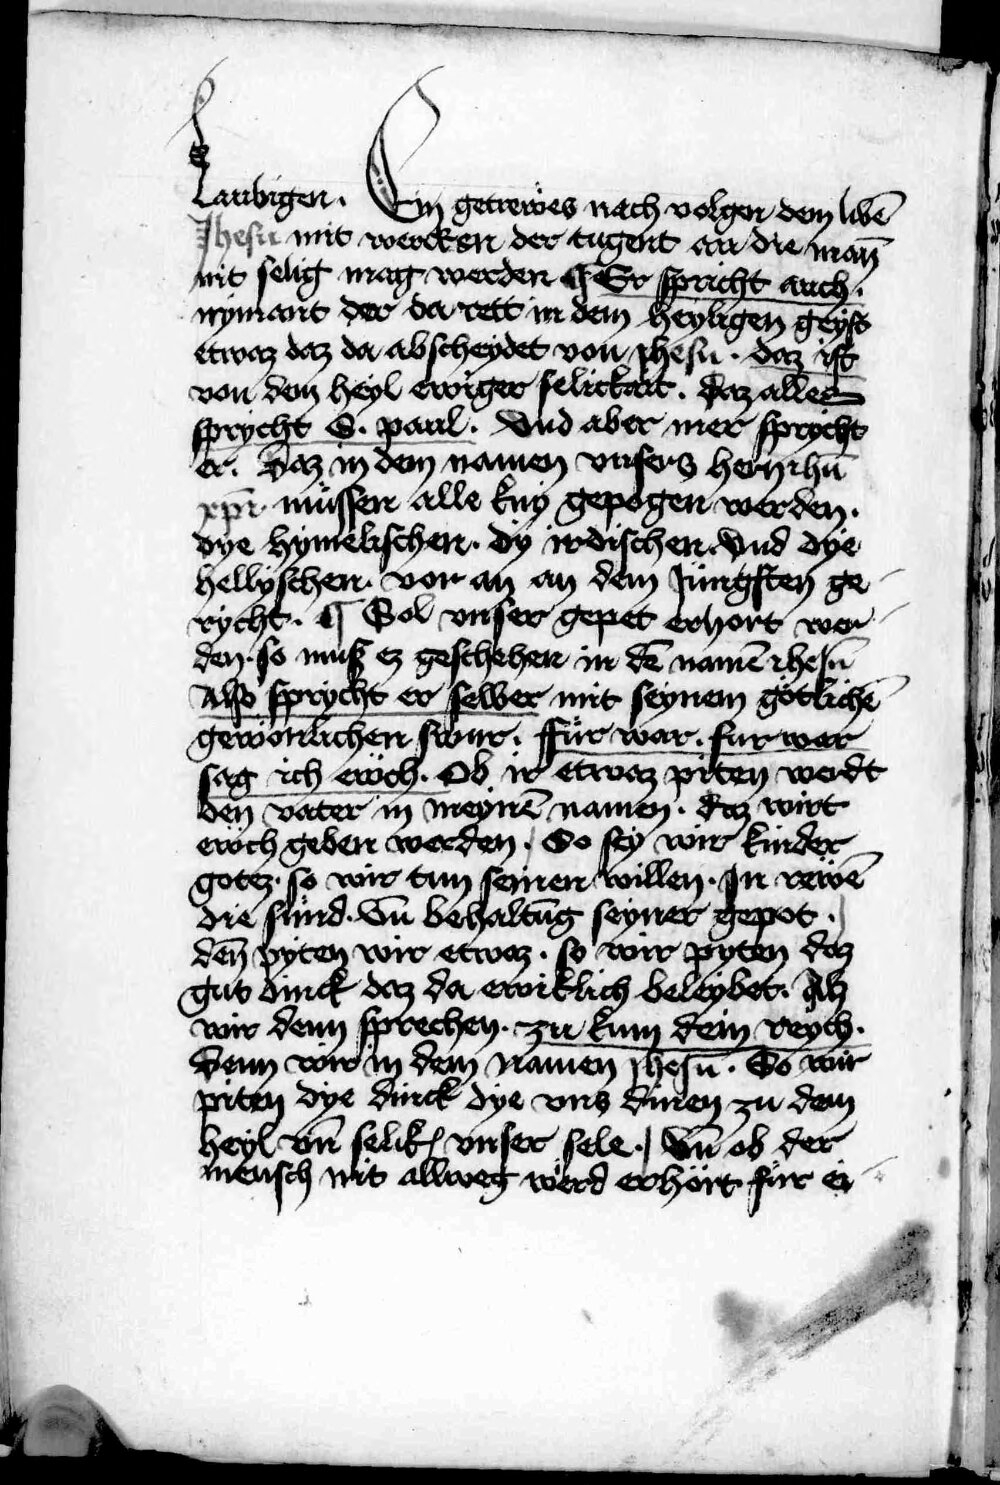 laubigen. Ein getrewes nach volgen dem libē
Jhesu mit wercken der tugent an die man̄
nit selig mag werden ¶ Er spricht auch.
nymant der da rett in dem heyligen geyst
etwaz daz da abscheydet von jhesu. daz ist
von dem heyl ewiger selickait. Daz alles
sprycht S. paul. Vnd aber mer sprycht
er. Daz in dem namen vnsers hern ihū
xp̄i müssen alle kny gepogen werden.
dye hymelischen. dy irdischen. Vnd dye
hellyschen. vor an an dem Jüngsten ge-
rycht. ¶ Sol vnser gepet erhort wer-
den. so muß ez geschehen in dē namē ihesū
Also sprycht er selber mit seynem götlichē
gewonlichen swur. Für war. fur war
sag ich ewch. Ob ir etwaz piten werdt
den vater in meynē namen. daz wirt
ewch geben werden. So sey wir kinder
gotez. so wir tun seinen willen. In rewē
die sünd. Vn̄ behaltūg seyner gepot.
den̄ pyten wir etwaz. so wir pyten daz
gut dinck daz da ewiklich beleybet. Als
wir denn sprechen. zu kum dein reych.
Denn wir in dem namen jhesu. So wir
piten dye dinck dye vns dinen zu dem
heyl vn̄ selik vnser sele. Vn̄ ob der
mensch nit allweg werd erhört für ei-